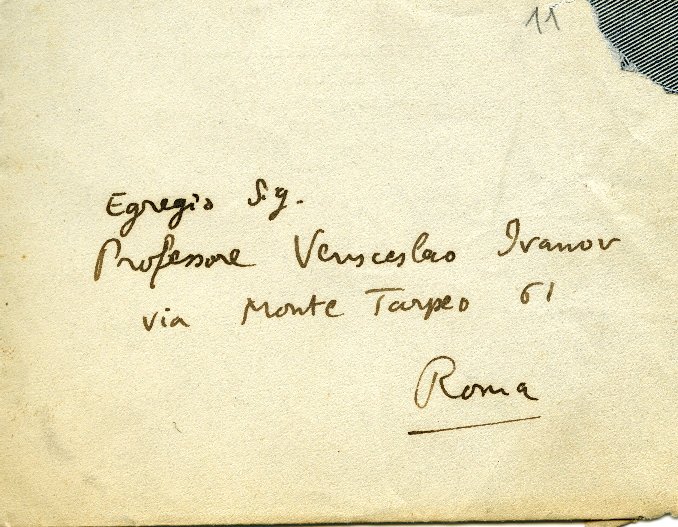 11
Egregio Sig.
Professore Venceslao Ivanov
via Monte Tarpeo 61
Roma